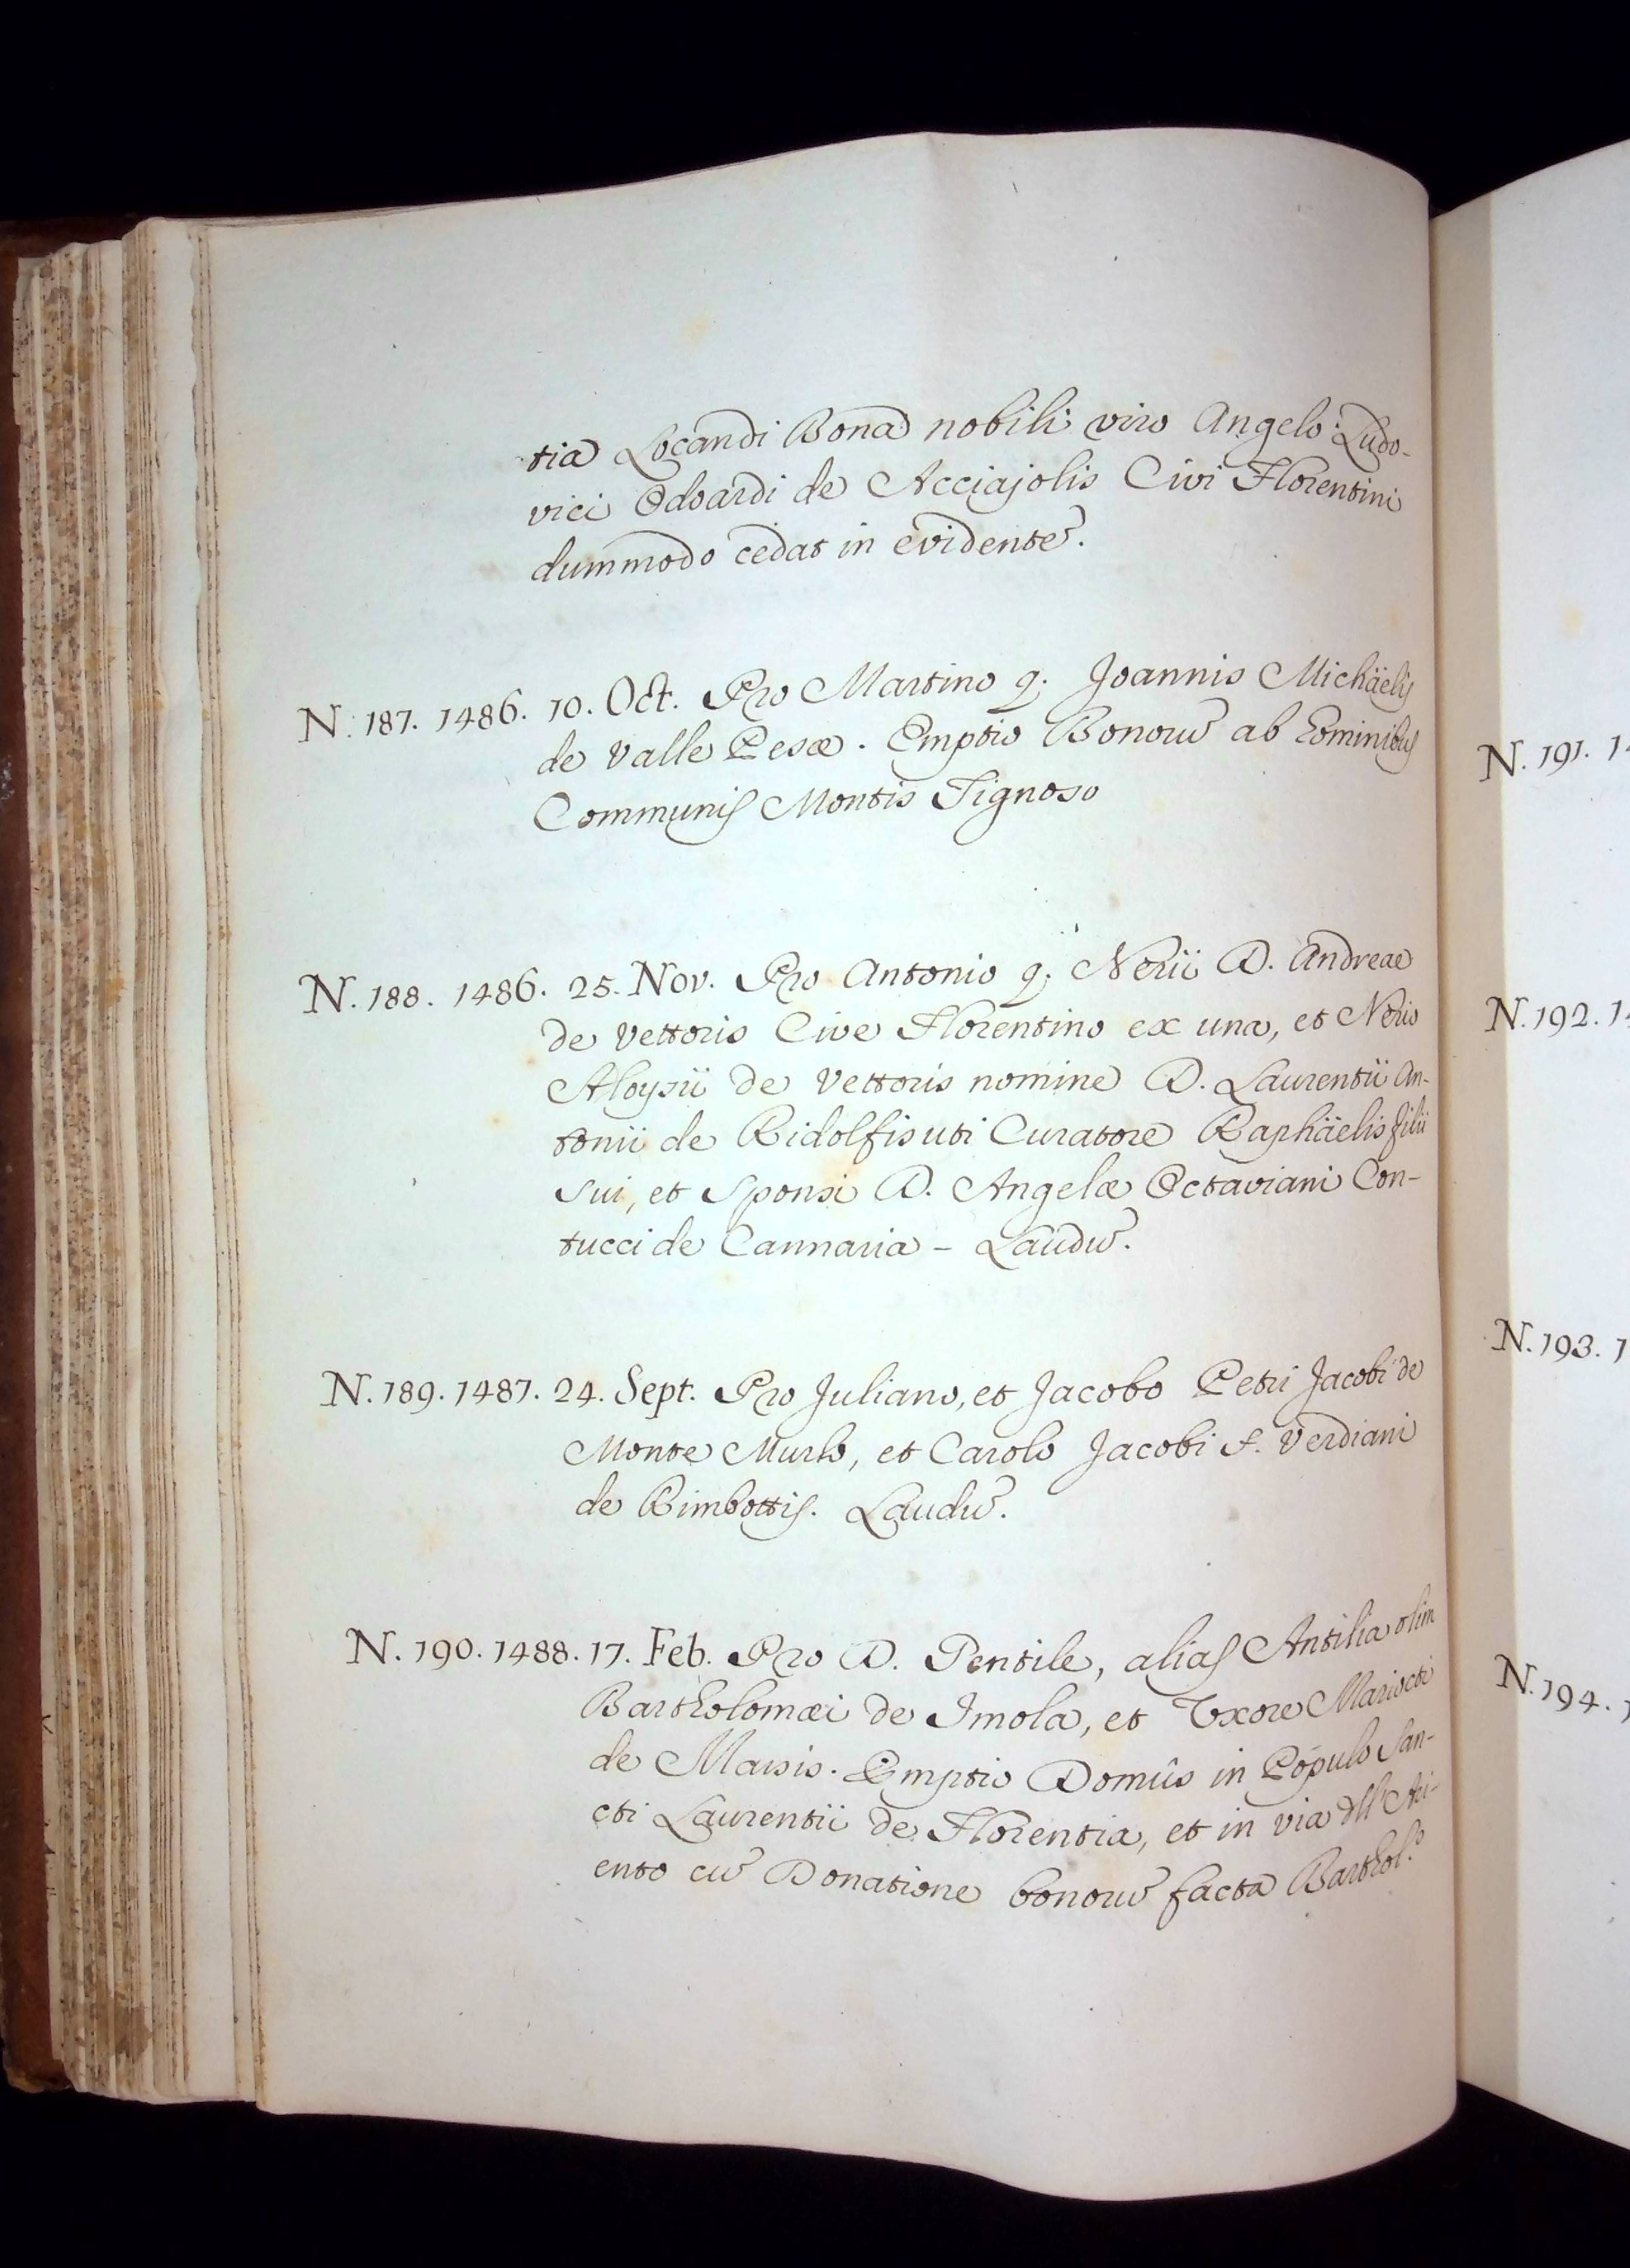 tia Locandi Bona nobili viro Angelo Ludo-
vici Odoardi de Acciajolis Civi Florentini
dummodo cedat in evidente͂.
N. 187. 1486. 10. Oct. Pro Martino q. Joannis Michäelis
de Valle Pesæ. Emptio Bonoru͂ ab hominibus
Communis Montis Tignoso
N. 188. 1486. 25. Nov. Pro Antonio q. Nerii D. Andreae
de Vettoris Cive Florentino ex una, et Nerio
Aloysii de Vettoris nomine D. Laurentii An-
tonii de Ridolfis uti Curatore Raphäelis filii
sui, et Sponsi D. Angelæ Octaviani Con-
tucci de Cannaria - Laudu͂.
N. 189. 1487. 24. Sept. Pro Juliano, et Jacobo Petri Jacobi de
Monte Murlo, et Carolo Jacobi S. Verdiani
de Rimbottis. Laudu͂.
N. 190. 1488. 17. Feb. Pro D. Gentile, alias Antilia olim
Bartholomæi de Imola, et Uxore Mariocti
de Marsis. Emptio Domûs in Populo San-
cti Laurentii de Florentia, et in via dll' Ari-
ento cu͂ Donatione bonoru͂ facta Barthol.º
N. 191. 14
N. 192. 14
N. 193. 1
N. 194. 1